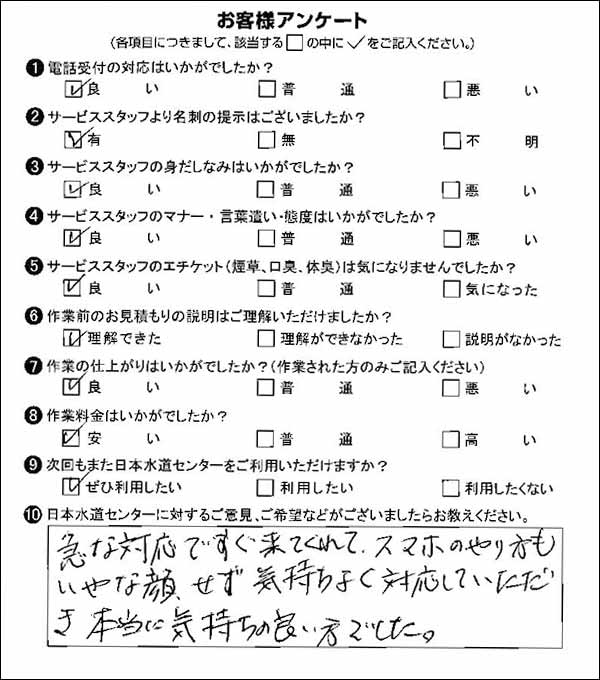 お客様アンケート
(各項目につきまして、該当する□の中に✓をご記入ください。)
❶電話受付の対応はいかがでしたか?
☑良い □普通 □悪い
❷サービススタッフより名刺の提示はございましたか?
☑有 □無 □不明
❸サービススタッフの身だしなみはいかがでしたか?
☑良い □普通 □悪い
❹サービススタッフのマナー・言葉遣い・態度はいかがでしたか?
☑良い □普通 □悪い
❺サービススタッフのエチケット(煙草、口臭、体臭)は気になりませんでしたか?
☑良い □普通 □気になった
❻作業前のお見積もりの説明はご理解いただけましたか?
☑理解できた □理解ができなかった □説明がなかった
❼作業の仕上がりはいかがでしたか?(作業された方のみご記入ください)
☑良い □普通 □悪い
❽作業料金はいかがでしたか?
☑安い □普通 □高い
❾次回もまた日本水道センターをご利用いただけますか?
☑ぜひ利用したい □利用したい □利用したくない
❿日本水道センターに対するご意見、ご希望などがございましたらお教えください。
急な対応ですぐ来てくれて、スマホのやり方も
いやな顔、せず気持ちよく対応していただ
き本当に気持ちの良い方でした。